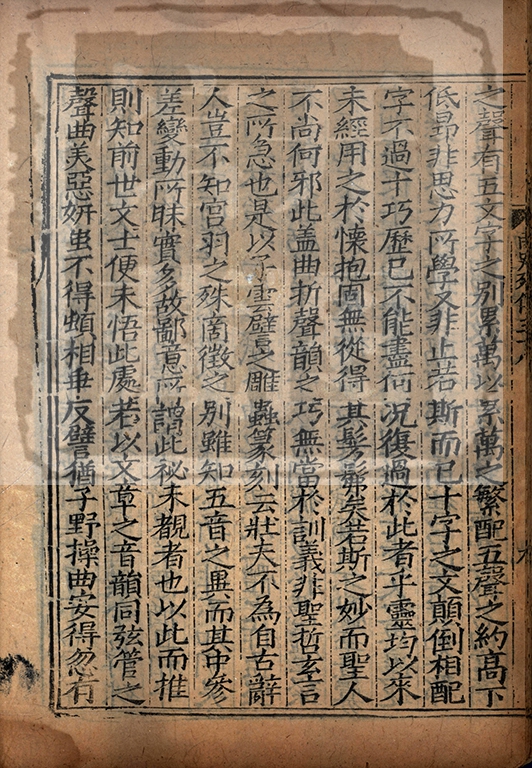 之聲有五文字之別累萬以累萬之繁配五聲之約高下
低昂非思力所學又非止若斯而已十字之文顛倒相配
字不過十巧歷已不能盡何況復過於此者乎靈均以來
未經用之於懷抱固無從得其髣髴矣若斯之妙而聖人
不尚何邪此盖曲折聲韻之巧無當於訓義非聖哲玄言
之所急也是以子雲譬之雕蟲篆刻云壯夫不為自古辭
人豈不知宮羽之殊商徵之別雖知五音之異而其中參
差變動所昧實多故鄙意所謂此祕未覩者也以此而推
則知前世文士便未悟此處若以文章之音韻同弦管之
聲曲美惡妍蚩不得頓相乖反譬猶子野操曲安得忽有